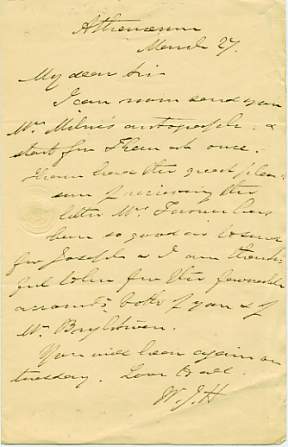 Athenaeum
March 27.
My dear Sir
I can now send you
Mr. Milne's autograph, &
start for them at once.
I have had the great plea-
sure of receiving the
letter Mr. has
been so good as to send
for Joseph & I am thank-
ful to him for the favourable
accounts both of you & of
Mr.
You will hear again on
Tuesday. Love to all.
W.J.H